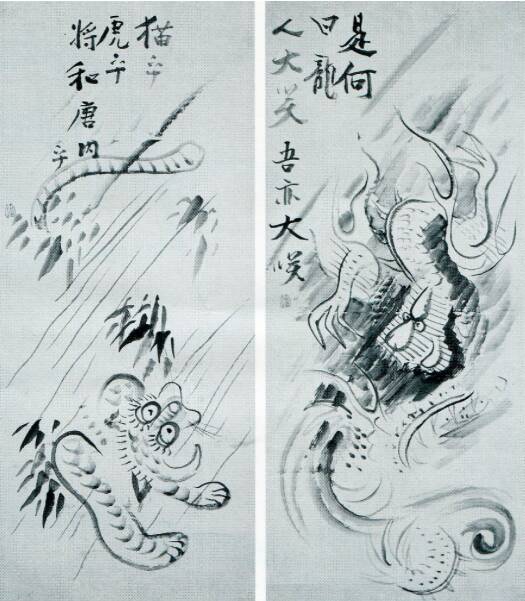 是何
曰龍
人大笑 吾亦大咲
猫乎
虎乎
將和唐内
乎